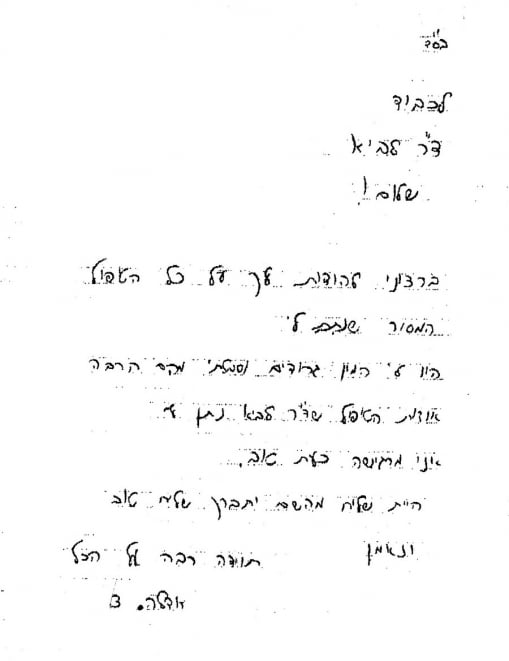 בס"ד
לכבוד
ד"ר לביא
שלום!
ברצוני להודות לך על כל הטיפול
המסור שנתת לי
היו לי המון גרודים וסבלתי מהם הרבה
אודות הטיפול שד"ר לביא נתן לי
אני מרגישה כעת טוב.
היית שליח מהשם יתברך שליח טוב
ונאמן
תודה רבה על הכל